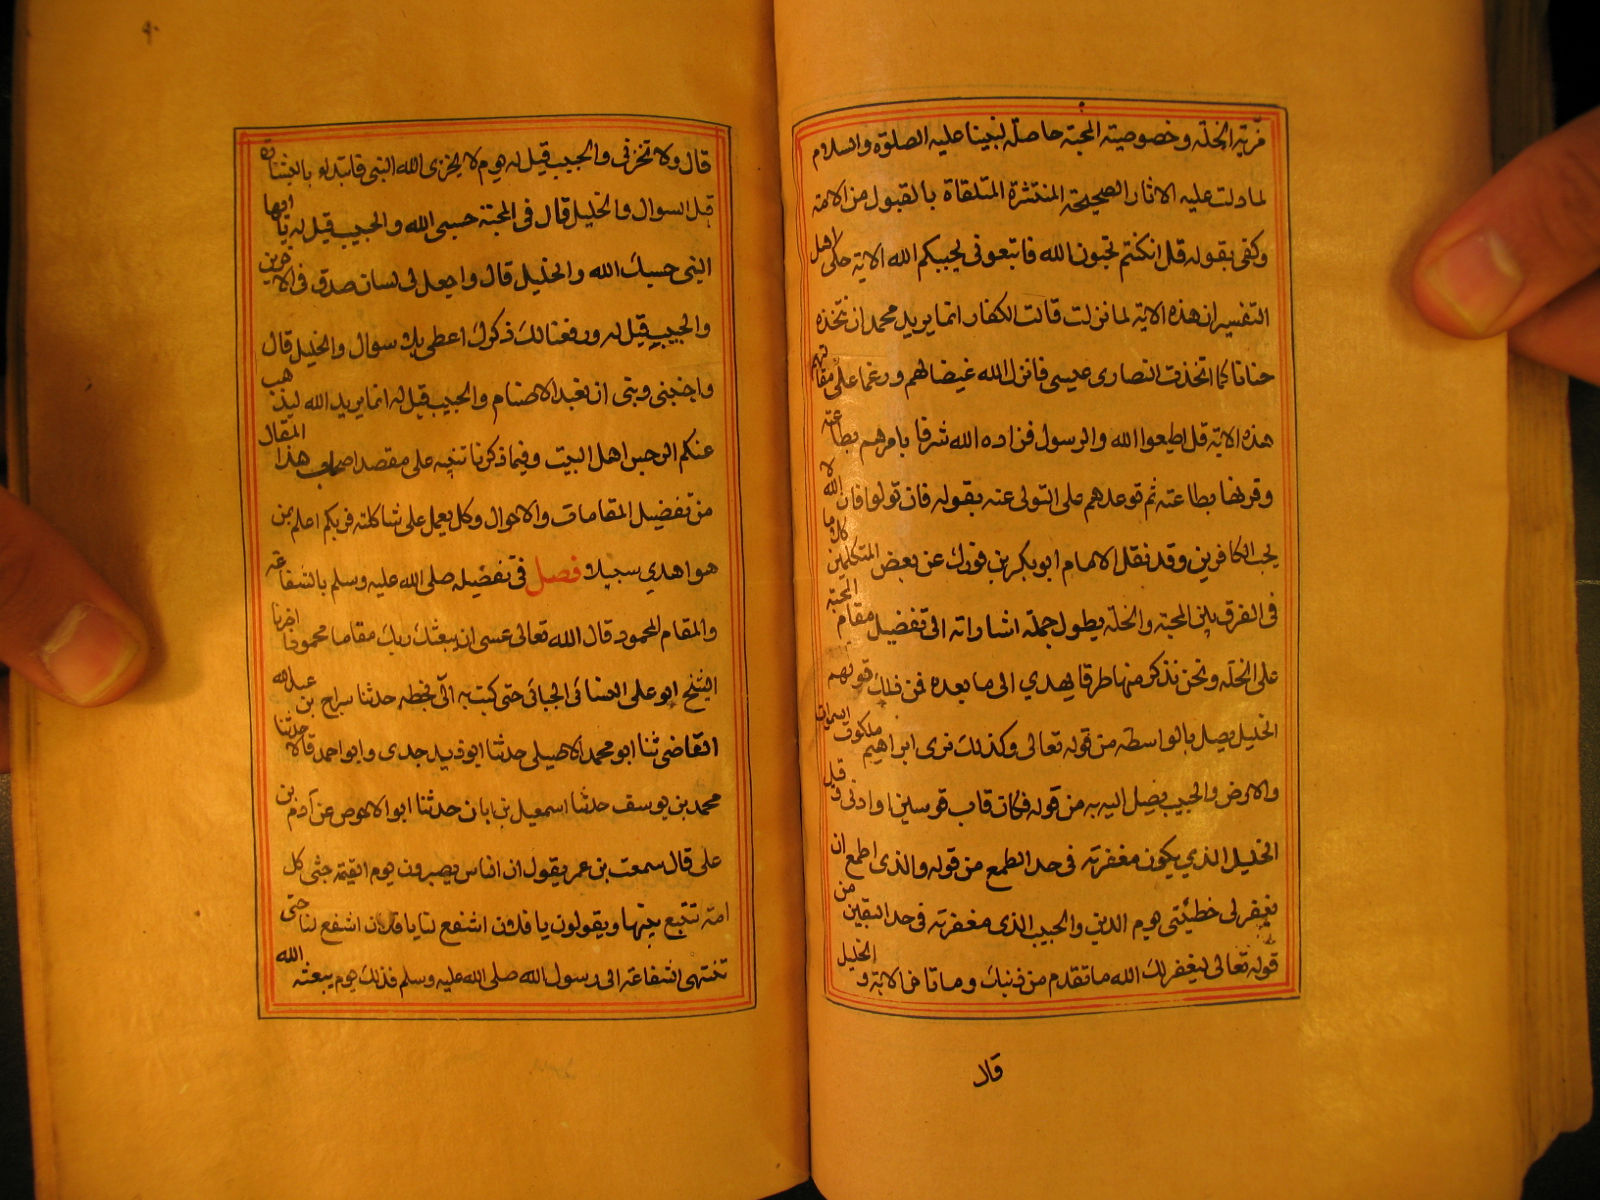 مزية الخلة وخصوصية المحبة حاصلة لنبينا عليه الصلوة والسلام
لما دلت عليه الاثار الصحيحة المنتشرة المتلقاة بالقبول من الامة
وكفى بقوله قل ان كنتم تحبون الله فاتبعوني يحببكم الله الاية حكى اهل
التفسير ان هذه الاية لما نزلت قالت الكفار انما يريد محمد ان نتخذه
حنانا كما اتخذت النصارى عيسى فانزل الله غيضا لهم ورغما على مقالتهم
هذه الاية قل اطيعوا الله والرسول فزاده الله شرفا بامرهم بطاعته
وقرنها بطاعته ثم توعدهم على التولى عنه بقوله فان تولوا فان الله لا
يحب الكافرين وقد نقل الامام ابو بكر بن فورك عن بعض المتكلمين كلاما
فى الفرق بين المحبة والخلة يطول جملة اشاراته الى تفضيل مقام المحبة
على الخلة ونحن نذكر منها طرفا يهدي الى ما بعده فمن ذلك قولهم
الخليل يصل بالواسطه من قوله تعالى وكذلك نرى ابراهيم ملكوت السموات
والارض والحبيب يصل اليه به من قوله فكان قاب قوسين او ادنى وقيل
الخليل الذي يكون مغفرته فى حد الطمع من قوله والذى اطمع ان
يغفر لى خطيئتى يوم الدين والحبيب الذى مغفرته فى حد اليقين من
قوله تعالى ليغفر لك الله ما تقدم من ذنبك وما تاخر الاية و الخليل
قال
٩٠
قال ولا تخزنى والحبيب قيل له يوم لا يخزى الله النبى فابتداء بالبشارة
قبل السوال والخليل قال فى المحبة حسبى الله والحبيب قيل له يا ايها
النبى حسبك الله والخليل قال واجعل لى لسان صدق فى الاخرين
والحبيب قيل له ورفعنا لك ذكرك اعطى بلا سوال والخليل قال
واجنبنى وبنى ان نعبد الاصنام والحبيب قيل له انما يريد الله ليذهب
عنكم الرجس اهل البيت وفيما ذكرنا تنبيه على مقصد اصحاب هذا المقال
من تفضيل المقامات والاحوال وكل يعمل على شاكلته فربكم اعلم بمن
هو اهدي سبيلا فصل فى تفضيله صلى الله عليه وسلم بالشفاعة
والمقام المحمود قال الله تعالى عسى ان يبعثك ربك مقاما محمودا اخبرنا
الشيخ ابو على الغسانى الجيانى حتى كتب به الى بخطه حدثنا سراج بن عبد الله
القاضى ثنا ابو محمد الاصيلى حدثنا ابو زيد جدى وابو احمد قالا حدثنا
محمد بن يوسف حدثنا اسمعيل بن ابان حدثنا ابو الاحوص عن آدم بن
على قال سمعت بن عمر يقول ان الناس يصيرون يوم القيمة جثى كل
امة تتبع نبيها ويقولون يا فلان اشفع لنا يا فلان اشفع لنا حتى
تنتهى الشفاعة الى رسول الله صلى الله عليه وسلم فذلك يوم يبعثه الله